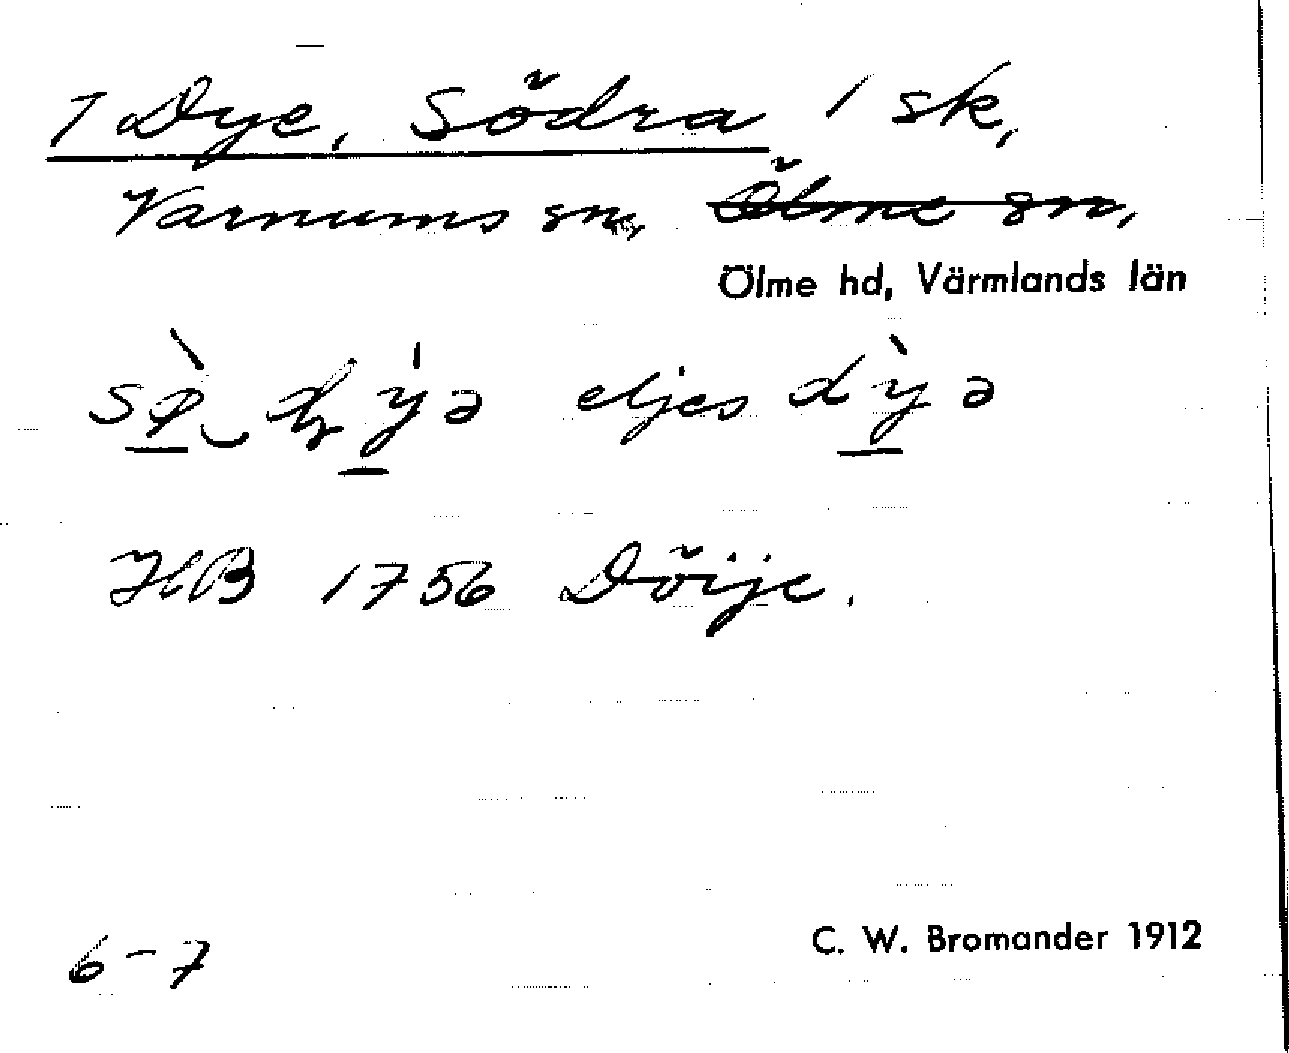 1 Dye, Södra 1 sk,
Varnums sn, Ölme sn,
Ölme hd, Värmlands län
eljes dỳə
HB 1756 Döije.
6-7
C. W. Bromander 1912